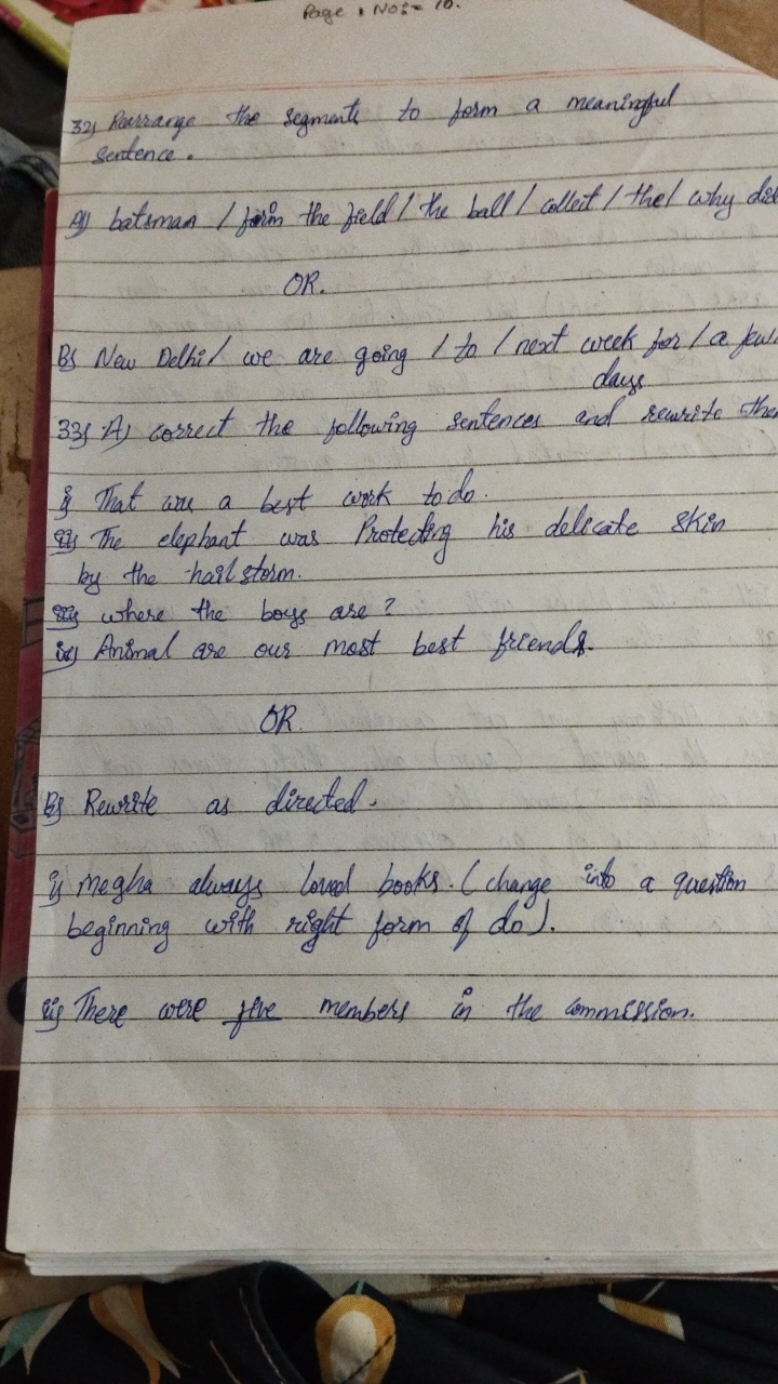 Page . No:- 10.
32) Rearrange the segments to form a meaningful
sentence.
A) batsman / form the field / the ball / collect / the / why did
OR.
B) New Delhi / we are going / to / next week for / a few
days
33) A) correct the following sentences and rewrite them
i) That was a best work to do.
ii) The elephant was Protecting his delicate skin
by the hailstorm.
iii) where the boys are ?
iv) Animal are our most best friends.
OR.
B) Rewrite as directed.
i) Megha always loved books. (change into a question
beginning with right form of do).
ii) There were five members in the commission.